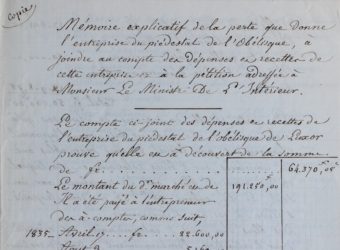 Copie
Mémoire explicatif de la perte que donne
l'entreprise du piédestal de l'Obélisque, à
joindre au compte des dépenses et recettes de
cette entreprise et à la pétition adressée à
Monsieur Le Ministre De l'Intérieur.
Le compte ci-joint des dépenses et recettes de
l'entreprise du piédestal de l'obélisque de Luxor
prouve qu'elle est à découvert de la somme
de fr. 64,370,05
Le montant du d. marché est de 191,250,00
Il a été payé à l'entrepreneur
des à-compter, comme suit,
1835 Avril 17. fr. 22.600,00